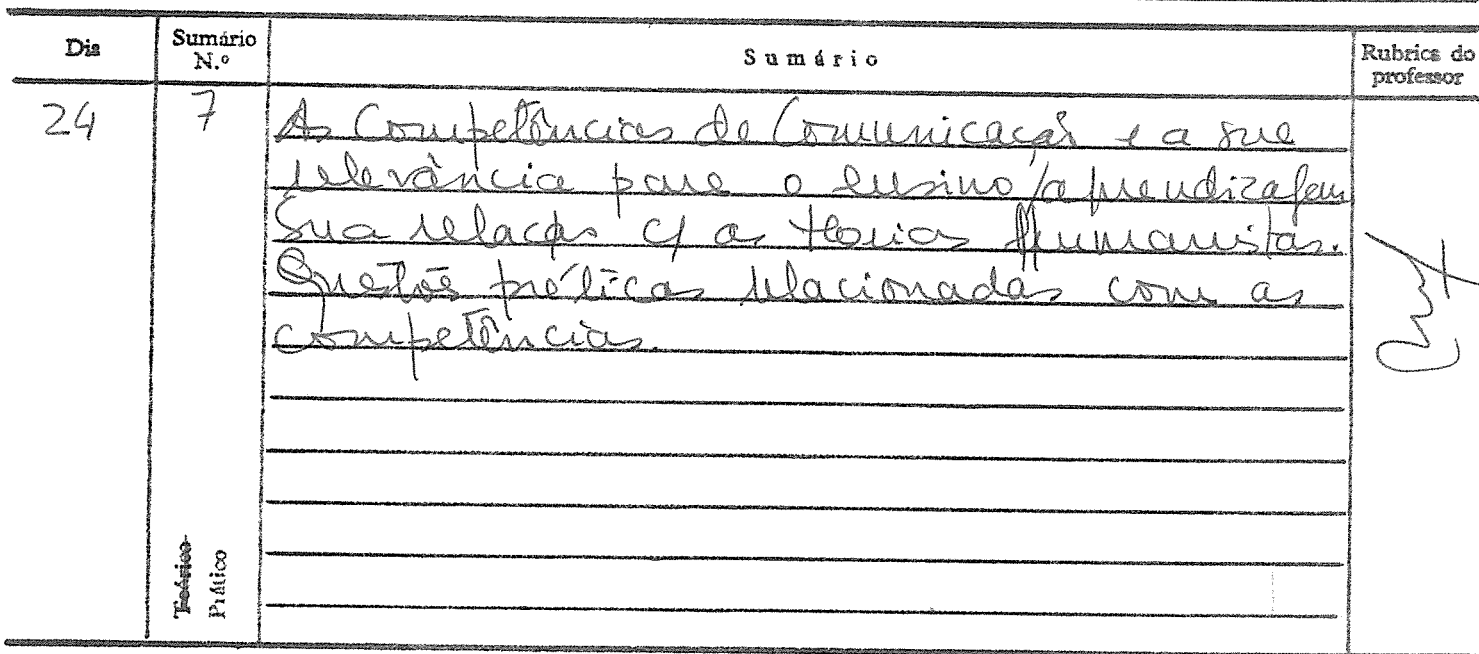 Dia
Sumário N.º
Sumário
Rubrica do professor
24
7
As Competências de Comunicação e a sua
relevância para o ensino/aprendizagem
Sua relação c/ as teorias Humanistas.
Questões práticas relacionadas com as
competências.
Teórico
Prático